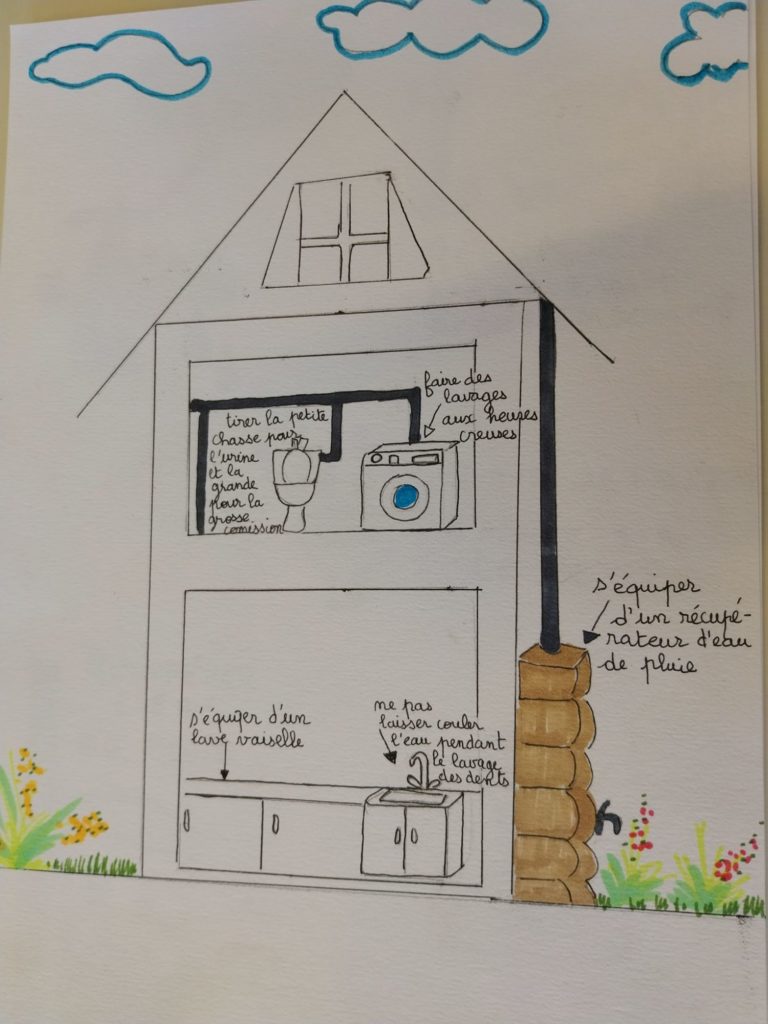 faire des
lavages
aux heures
creuses
tirer la petite
chasse pour
l'urine
et la
grande
pour la
grosse
comission
s'équiper
d'un récupé-
rateur d'eau
de pluie
s'équiper d'un
lave vaiselle
ne pas
laisser couler
l'eau pendant
le lavage
des dents